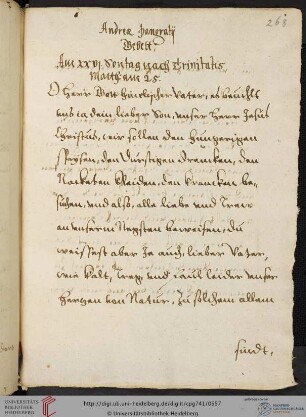 268
Andreæ
Gebett.
Am XXVI Sontag nach Trinitatis
Matth am 25.
O Herr Gott himlischer Vater, es
uns ja dein lieber Son, unser Herr Jesus
Christus, wir sollen den hungerigen
speysen, den durstigen drencken, den
Nacketen kleiden, den krancken be„
suchen, und also, alle liebe und trew
an unserm Nechsten beweisen, du
weissest aber Ja auch, lieber Vater,
wie kalt, treg, und faul leider unser
hertzen von Natur, zu solchem allem
sindt,
UNIVERSITÄTS-
BIBLIOTHEK
HEIDELBERG
http://digi.ub.uni-heidelberg.de/diglit/cpg741/0557
© Universitätsbibliothek Heidelberg